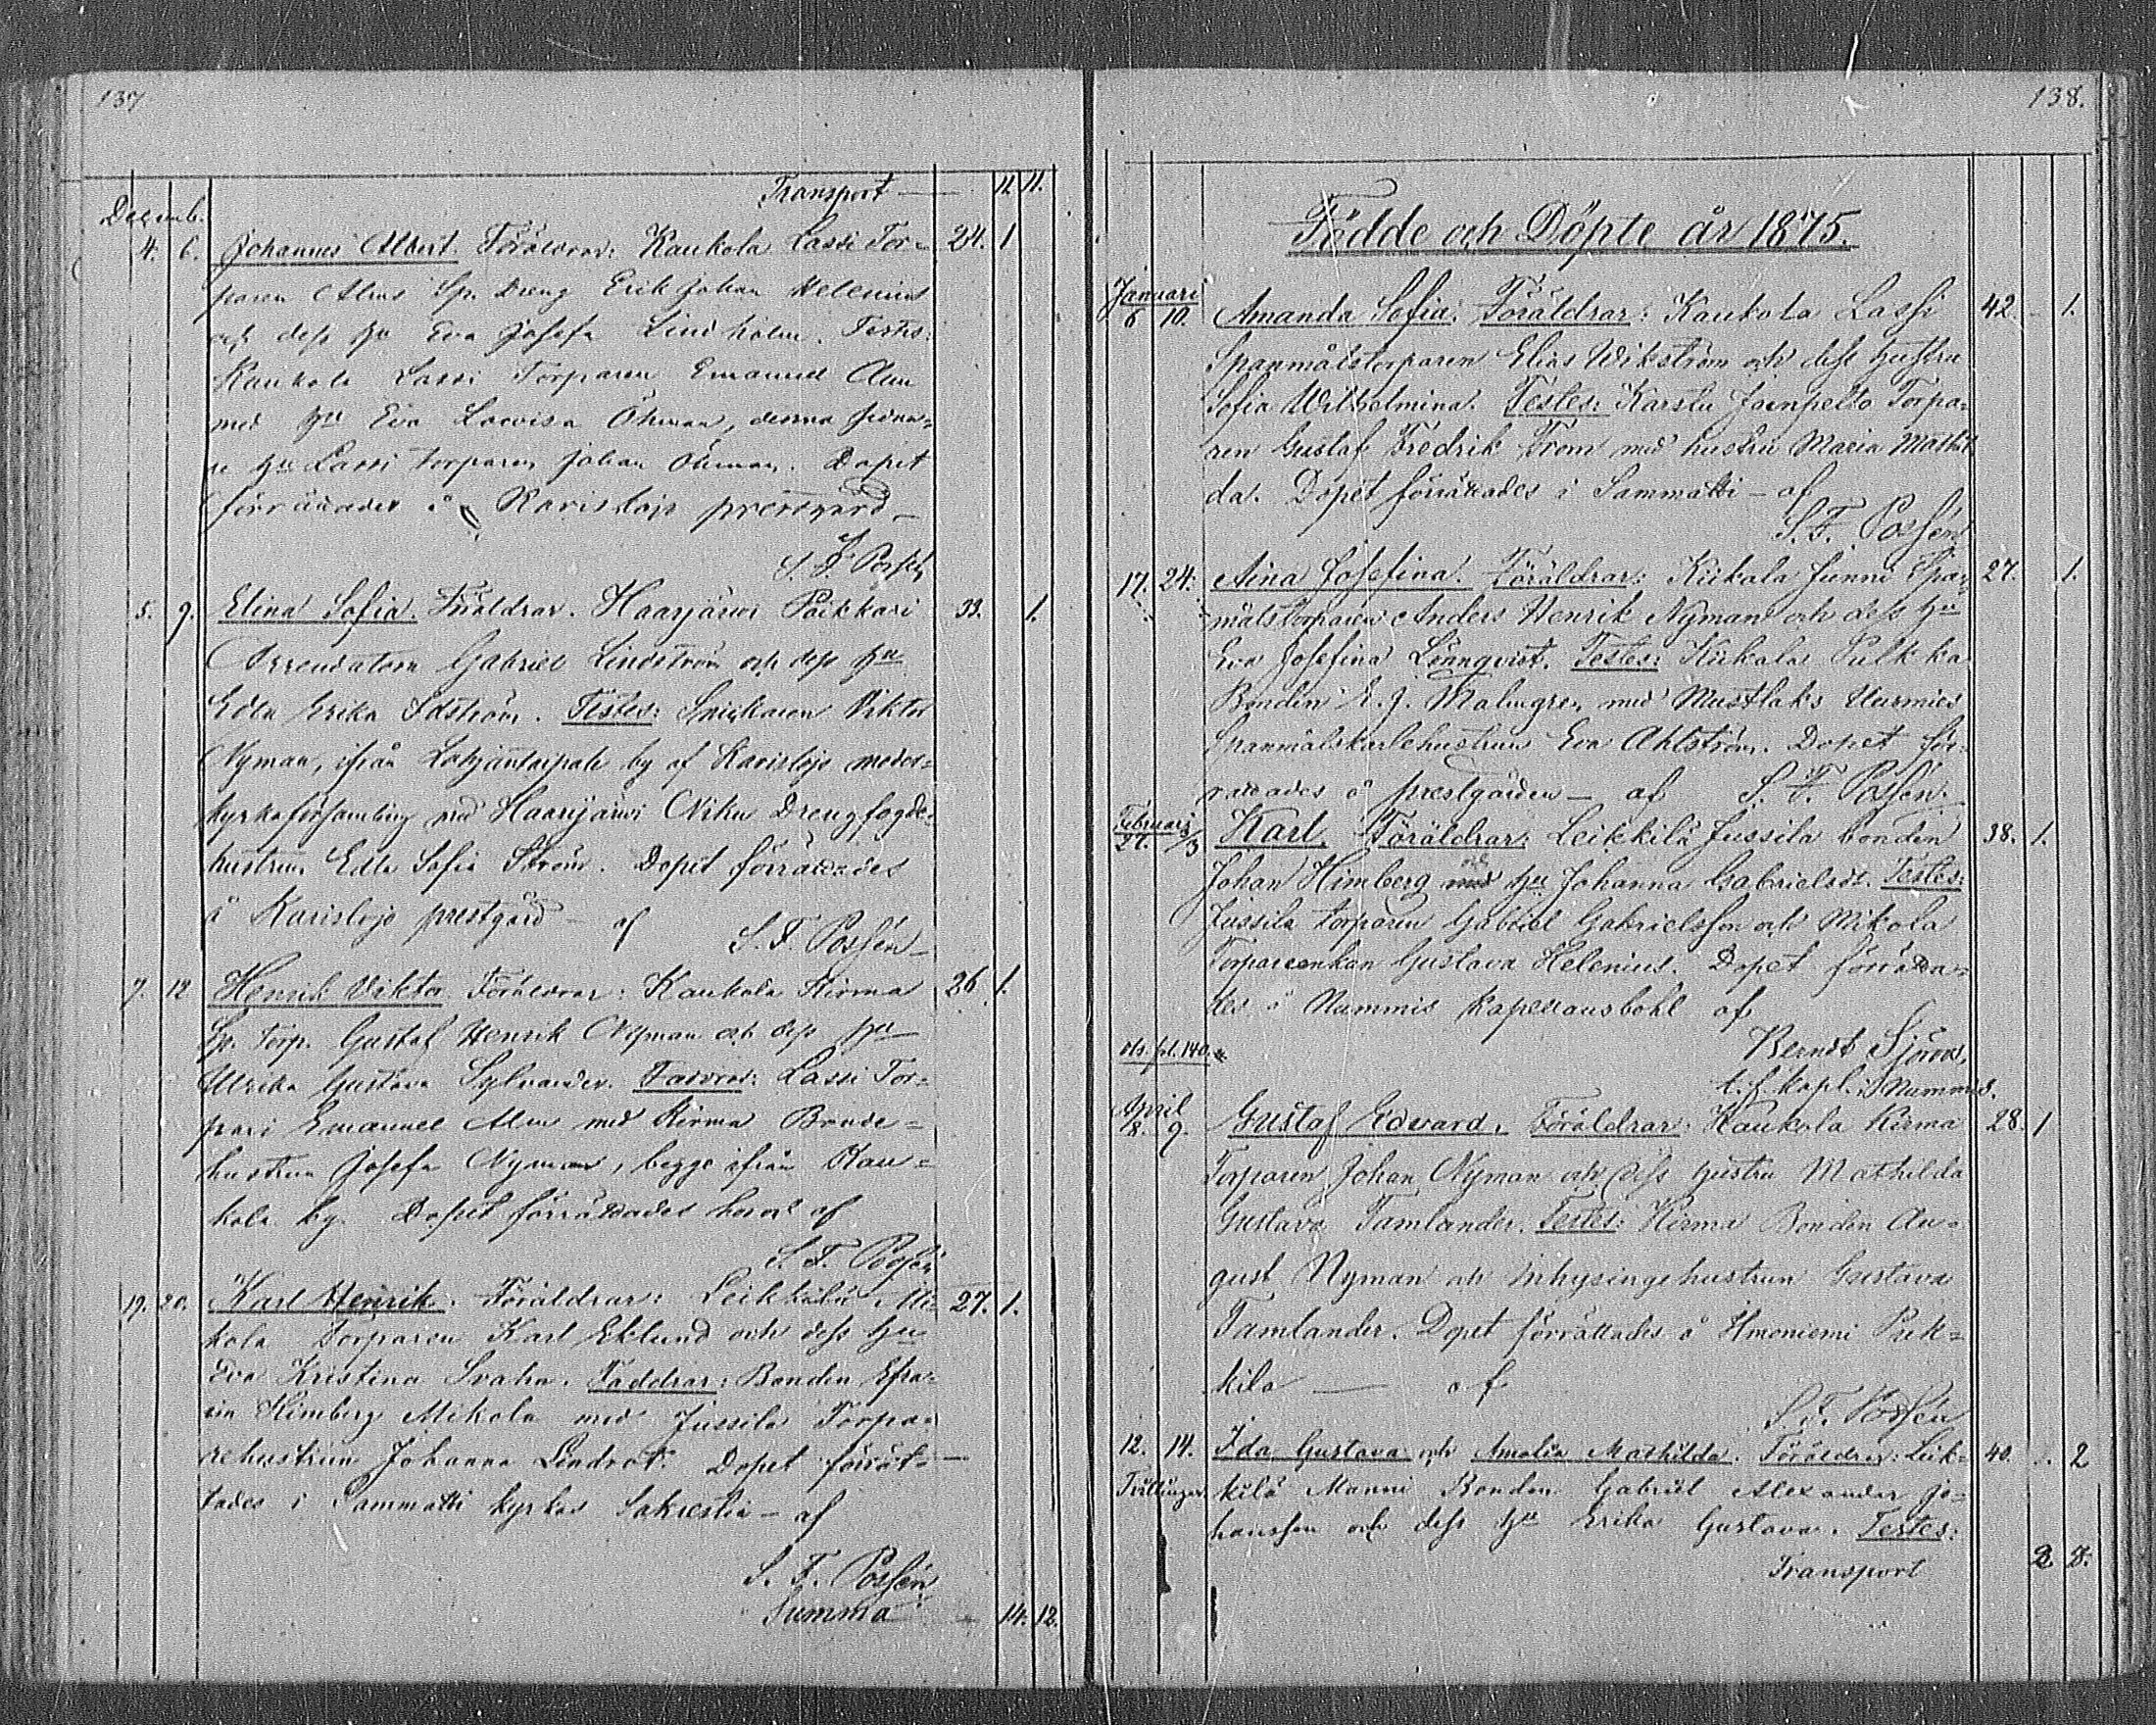 137
Transport — 11. 11.
Decemb.
4. 6. Johannes Albert. Föräldrar: Kaukola Lassi Tor- 24. 1
paren Alms Sp. Dreng Erik Johan Helenius
och dess Hu Eva Josefa Lindholm. Testes:
Kaukola Lassi Torparen Emanuel Alm
med Hu Eva Lovisa Öhman, denna sedna-
re Hu Lassi torparen Johan Öhman. Dopet
förrättades å Karislojo prestgård —
S. F. Possén
5. 9. Elina Sofia. Föräldrar. Haarjärvi Paikkari 33. 1.
Arrendatorn Gabriel Lindström och dess Hu
Edla Erika Idström. Testes: Snickaren Viktor
Nyman, ifrån Lohjantaipale by af Karislojo moder-
kyrkoförsamling med Haarijärvi Niku Drengfogde-
hustrun Edla Sofia Ström. Dopet förrättades
å Karislojo prestgård — af S. F. Possén —
7. 12 Henrik Viktor. Föräldrar: Kaukola Kirma 26. 1.
Sp. Torp. Gustaf Henrik Nyman och dess Hu
Ulrika Gustava Sylvander. Faddrar: Lassi Tor-
pari Emanuel Alm med Kirma Bonde-
hustrun Josefa Nyman, begge ifrån Kau-
kola by. Dopet förrättades af
S. F. Possén
19. 20. Karl Henrik. Föräldrar: Leikkilä Mi- 27. 1.
kola Torparen Karl Eklund och dess Hu
Eva Kristina Svahn. Faddrar: Bonden Efra-
im Himberg Mikola med Jussila Torpa-
rehustrun Johanna Lindrot. Dopet förrät-
tades i Sammatti kyrkas Sakrestia — af
S. F. Possén
Summa — 14. 12.
138.
Födde och Döpte år 1875.
Januari
6 10. Amanda Sofia. Föräldrar: Kaukola Lassi 42. — 1.
Spanmålstorparen Elias Wikström och dess hustru
Sofia Wilhelmina. Testes: Karstu Jaenpelto Torpa-
ren Gustaf Fredrik From med hustru Maria Mathil-
da. Dopet förrättades i Sammatti — af
S. F. Possén
17. 24. Aina Josefina. Föräldrar: Kiikala Junni Span- 27. 1.
målstorparen Anders Henrik Nyman och dess Hu
Eva Josefina Lönnqvist. Testes: Kiikala Pulkka
Bonden E. J. Malmgren med Mustlaks Uusmies
Spanmålskarlehustrun Eva Ahlström. Dopet för-
rättades å prestgården — af S. F. Possén.
Februari
27. /3 Karl. Föräldrar: Leikkilä Jussila bonden 38. 1.
Johan Himberg och Hu Johanna Gabrielsdr. Testes:
Jussila torparen Gabriel Gabrielsson och Mikola
Torpareenkan Gustava Helenius. Dopet förrätta-
des å Nummis Kapellansbohl af
Berndt Sjöroos,
t. f. kapl. i Nummis.
fol. 140.
April
8. 9. Gustaf Edvard. Föräldrar: Kaukola Kirma 28. 1
Torparen Johan Nyman och dess hustru Mathilda
Gustava Tamlander. Testes: Kirma Bonden Au-
gust Nyman och Inhysingehustrun Gustava
Tamlander. Dopet förrättades å Ilmoniemi Puk-
kila — af
S. F. Possén
12. 14. Ida Gustava och Amalia Mathilda. Föräldrar: Leik- 40. 2
Tvillingar. kilä Manni Bonden Gabriel Alexander Jo-
hansson och dess Hu Erika Gustava. Testes:
Transport